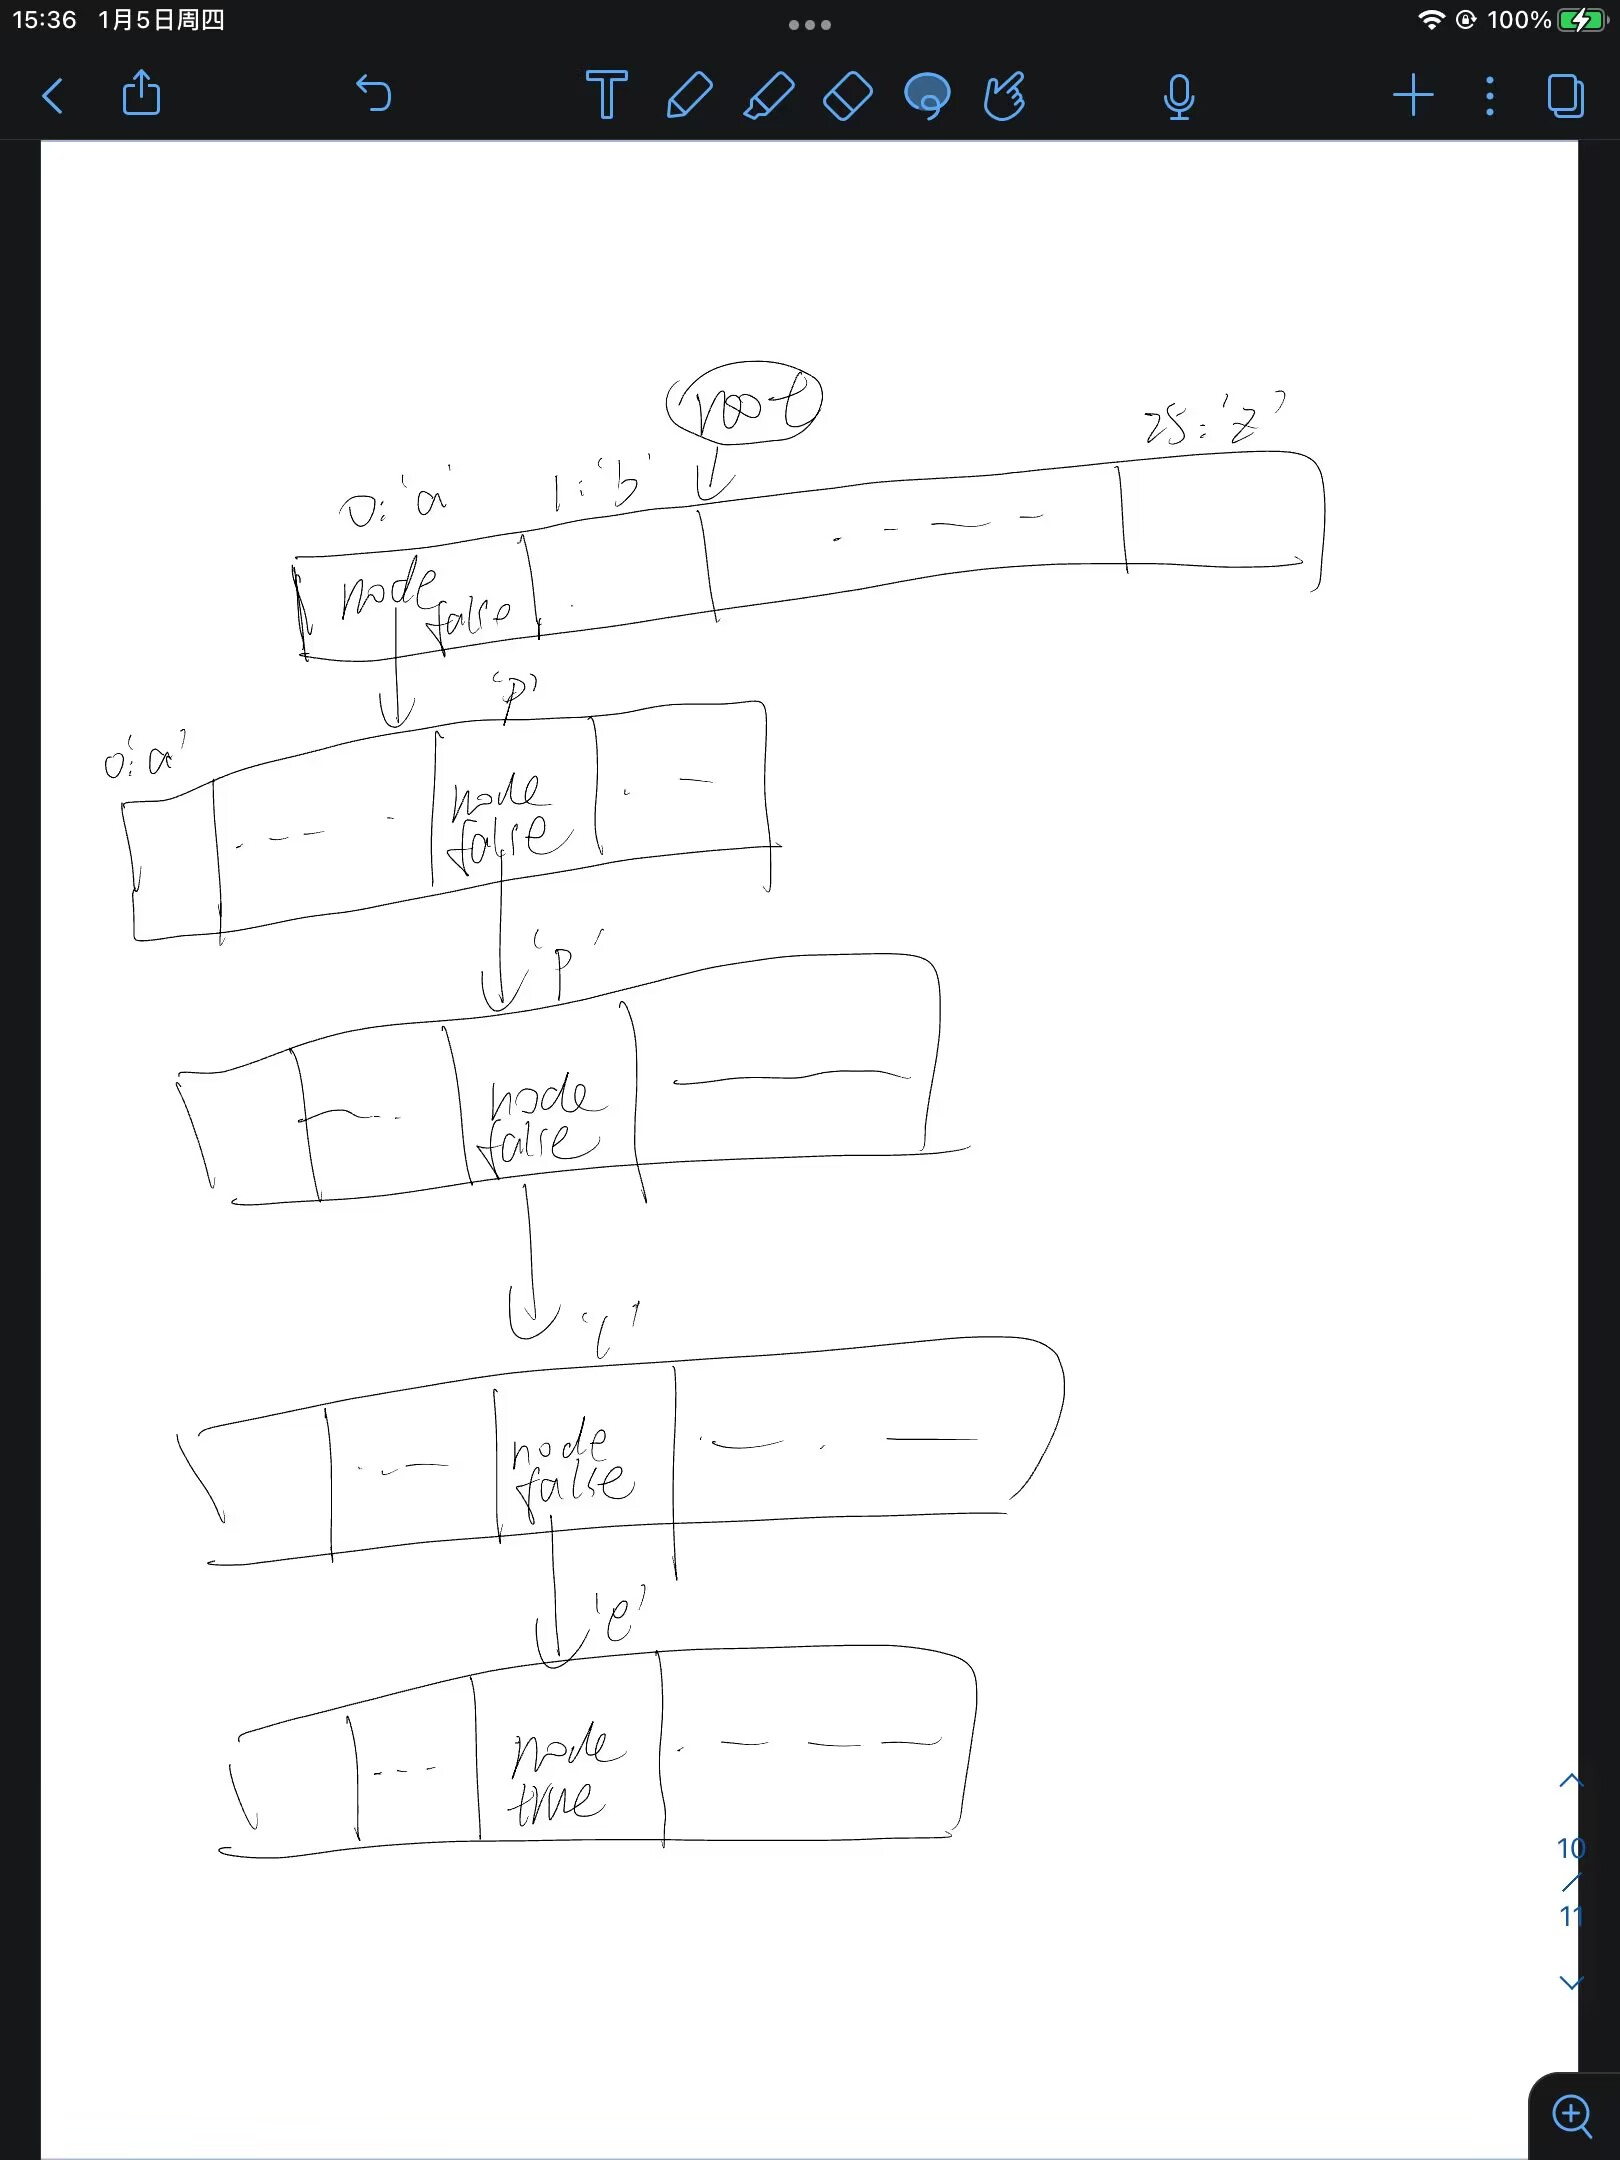 15:36 1月5日周四
100%
T
root
0:'a' 1:'b' 25:'z'
node
false
'p'
0:'a'
node
false
'p'
node
false
'l'
node
false
'e'
node
true
10
/
11